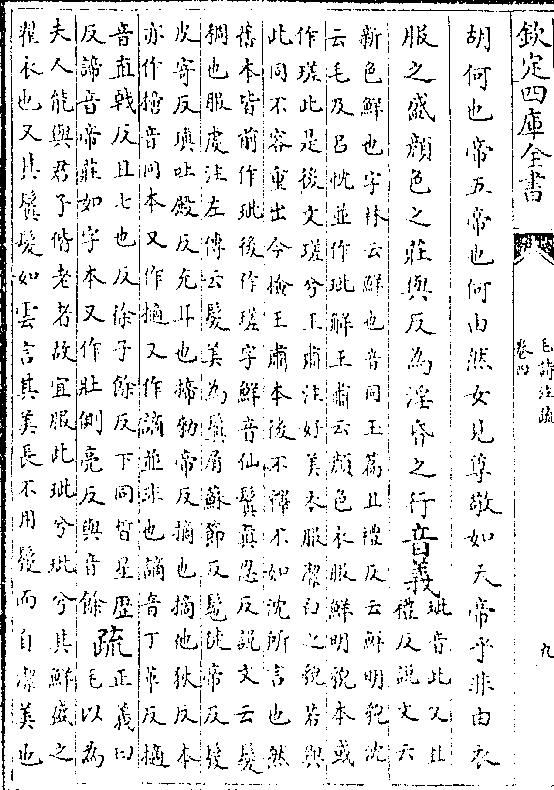 欽定四庫全書
毛詩注疏
卷四
九
胡何也帝五帝也何由然女見尊敬如天帝乎非由衣
服之盛顔色之莊與反為淫昏之行音義
玼音此又且
禮反説文云
新色鮮也字林云鮮也音同玉篇且禮反云鮮明貌沈
云毛及呂忱並作玼解王肅云顔色衣服鮮明貌本或
作瑳此是後文瑳兮王肅注好美衣服潔白之貌若與
此同不容重出今檢王肅本後不釋不如沈所言也然
舊本皆前作玼後作瑳字鮮音仙鬒真忍反説文云髮
稠也服虔注左傳云髮美為鬒屑蘇節反髢徒帝反髲
皮寄反瑱吐殿反充耳也揥勅帝反摘也摘他狄反本
亦作擿音同本又作擿又作謫並非也謫音丁革反擿
音直戟反且七也反徐子餘反下同晳星歷
反諦音帝莊如字本又作壯側亮反與音餘
疏正義曰
毛以為
夫人能與君子偕老者故宜服此玼兮玼兮其鮮盛之
翟衣也又其鬒髮如雲言其美長不用髲而自潔美也